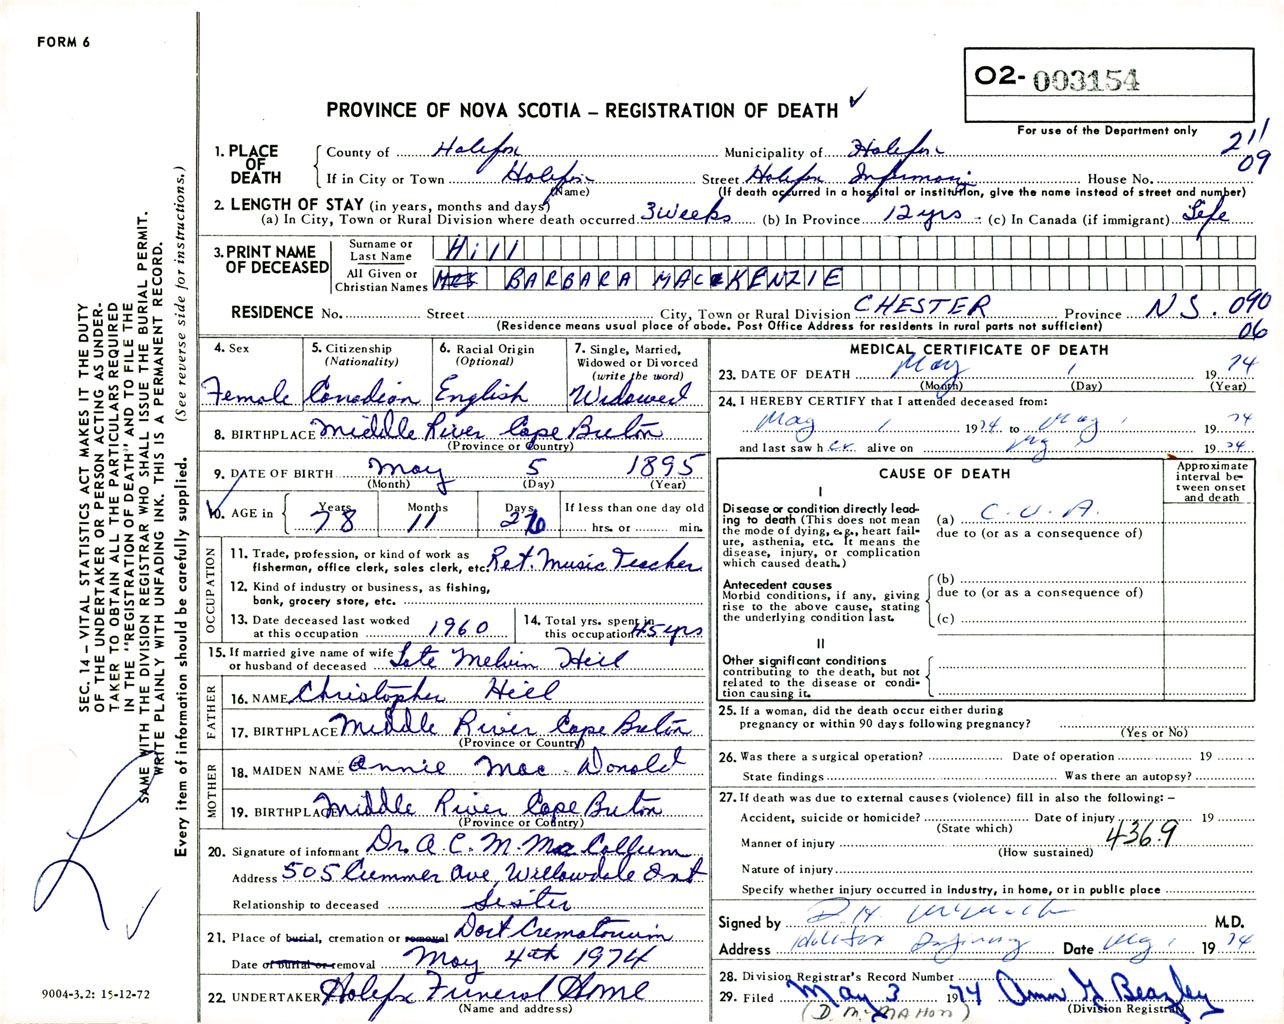 FORM 6
O2- 003154
PROVINCE OF NOVA SCOTIA – REGISTRATION OF DEATH ✓
For use of the Department only
211
09
1. PLACE OF DEATH
County of Halifax Municipality of Halifax
If in City or Town Halifax Street Halifax Infirmary House No.
(Name) (If death occurred in a hospital or institution, give the name instead of street and number)
2. LENGTH OF STAY (in years, months and days)
(a) In City, Town or Rural Division where death occurred 3 Weeks (b) In Province 12 yrs (c) In Canada (if immigrant) Life
3. PRINT NAME OF DECEASED
Surname or Last Name Hill
All Given or Christian Names BARBARA MACKENZIE
RESIDENCE No. Street City, Town or Rural Division CHESTER Province N.S. 090
(Residence means usual place of abode. Post Office Address for residents in rural parts not sufficient) 06
4. Sex
Female
5. Citizenship
(Nationality)
Canadian
6. Racial Origin
(Optional)
English
7. Single, Married,
Widowed or Divorced
(write the word)
Widowed
8. BIRTHPLACE Middle River Cape Breton
(Province or Country)
9. DATE OF BIRTH May 5 1895
(Month) (Day) (Year)
10. AGE in
Years Months Days If less than one day old
78 11 26 hrs. or min.
OCCUPATION
11. Trade, profession, or kind of work as
fisherman, office clerk, sales clerk, etc. Ret. Music Teacher
12. Kind of industry or business, as fishing,
bank, grocery store, etc.
13. Date deceased last worked
at this occupation 1960
14. Total yrs. spent in
this occupation 45 yrs
15. If married give name of wife
or husband of deceased Late Melvin Hill
FATHER
16. NAME Christopher Hill
17. BIRTHPLACE Middle River Cape Breton
(Province or Country)
MOTHER
18. MAIDEN NAME Annie Mac Donald
19. BIRTHPLACE Middle River Cape Breton
(Province or Country)
20. Signature of informant Dr. A. C. M. Mac Callum
Address 505 Cummer Ave, Willowdale Ont
Relationship to deceased Sister
21. Place of burial, cremation or removal Dart Crematorium
Date of burial or removal May 4th 1974
22. UNDERTAKER Halifax Funeral Home
(Name and address)
MEDICAL CERTIFICATE OF DEATH
23. DATE OF DEATH May 1 1974
(Month) (Day) (Year)
24. I HEREBY CERTIFY that I attended deceased from:
May 1 1974 to May 1 1974
and last saw h er alive on May 1 1974
CAUSE OF DEATH
Approximate interval between onset and death
I
Disease or condition directly leading to death (This does not mean the mode of dying, e.g., heart failure, asthenia, etc. It means the disease, injury, or complication which caused death.)
(a) C.V.A.
due to (or as a consequence of)
Antecedent causes
Morbid conditions, if any, giving rise to the above cause, stating the underlying condition last.
(b)
due to (or as a consequence of)
(c)
II
Other significant conditions
contributing to the death, but not related to the disease or condition causing it.
25. If a woman, did the death occur either during
pregnancy or within 90 days following pregnancy?
(Yes or No)
26. Was there a surgical operation? Date of operation 19
State findings Was there an autopsy?
27. If death was due to external causes (violence) fill in also the following: –
Accident, suicide or homicide? Date of injury 19
(State which)
436.9
Manner of injury
(How sustained)
Nature of injury
Specify whether injury occurred in Industry, in home, or in public place
Signed by M.D.
Address Halifax Infirmary Date May 1 1974
28. Division Registrar's Record Number
29. Filed May 3 1974 Ann G Beazley
(D. McMAHON) (Division Registrar)
SEC. 14 – VITAL STATISTICS ACT MAKES IT THE DUTY
OF THE UNDERTAKER OR PERSON ACTING AS UNDER-
TAKER TO OBTAIN ALL THE PARTICULARS REQUIRED
IN THE "REGISTRATION OF DEATH" AND TO FILE THE
SAME WITH THE DIVISION REGISTRAR WHO SHALL ISSUE THE BURIAL PERMIT.
WRITE PLAINLY WITH UNFADING INK. THIS IS A PERMANENT RECORD.
Every item of information should be carefully supplied. (See reverse side for instructions.)
9004-3.2: 15-12-72